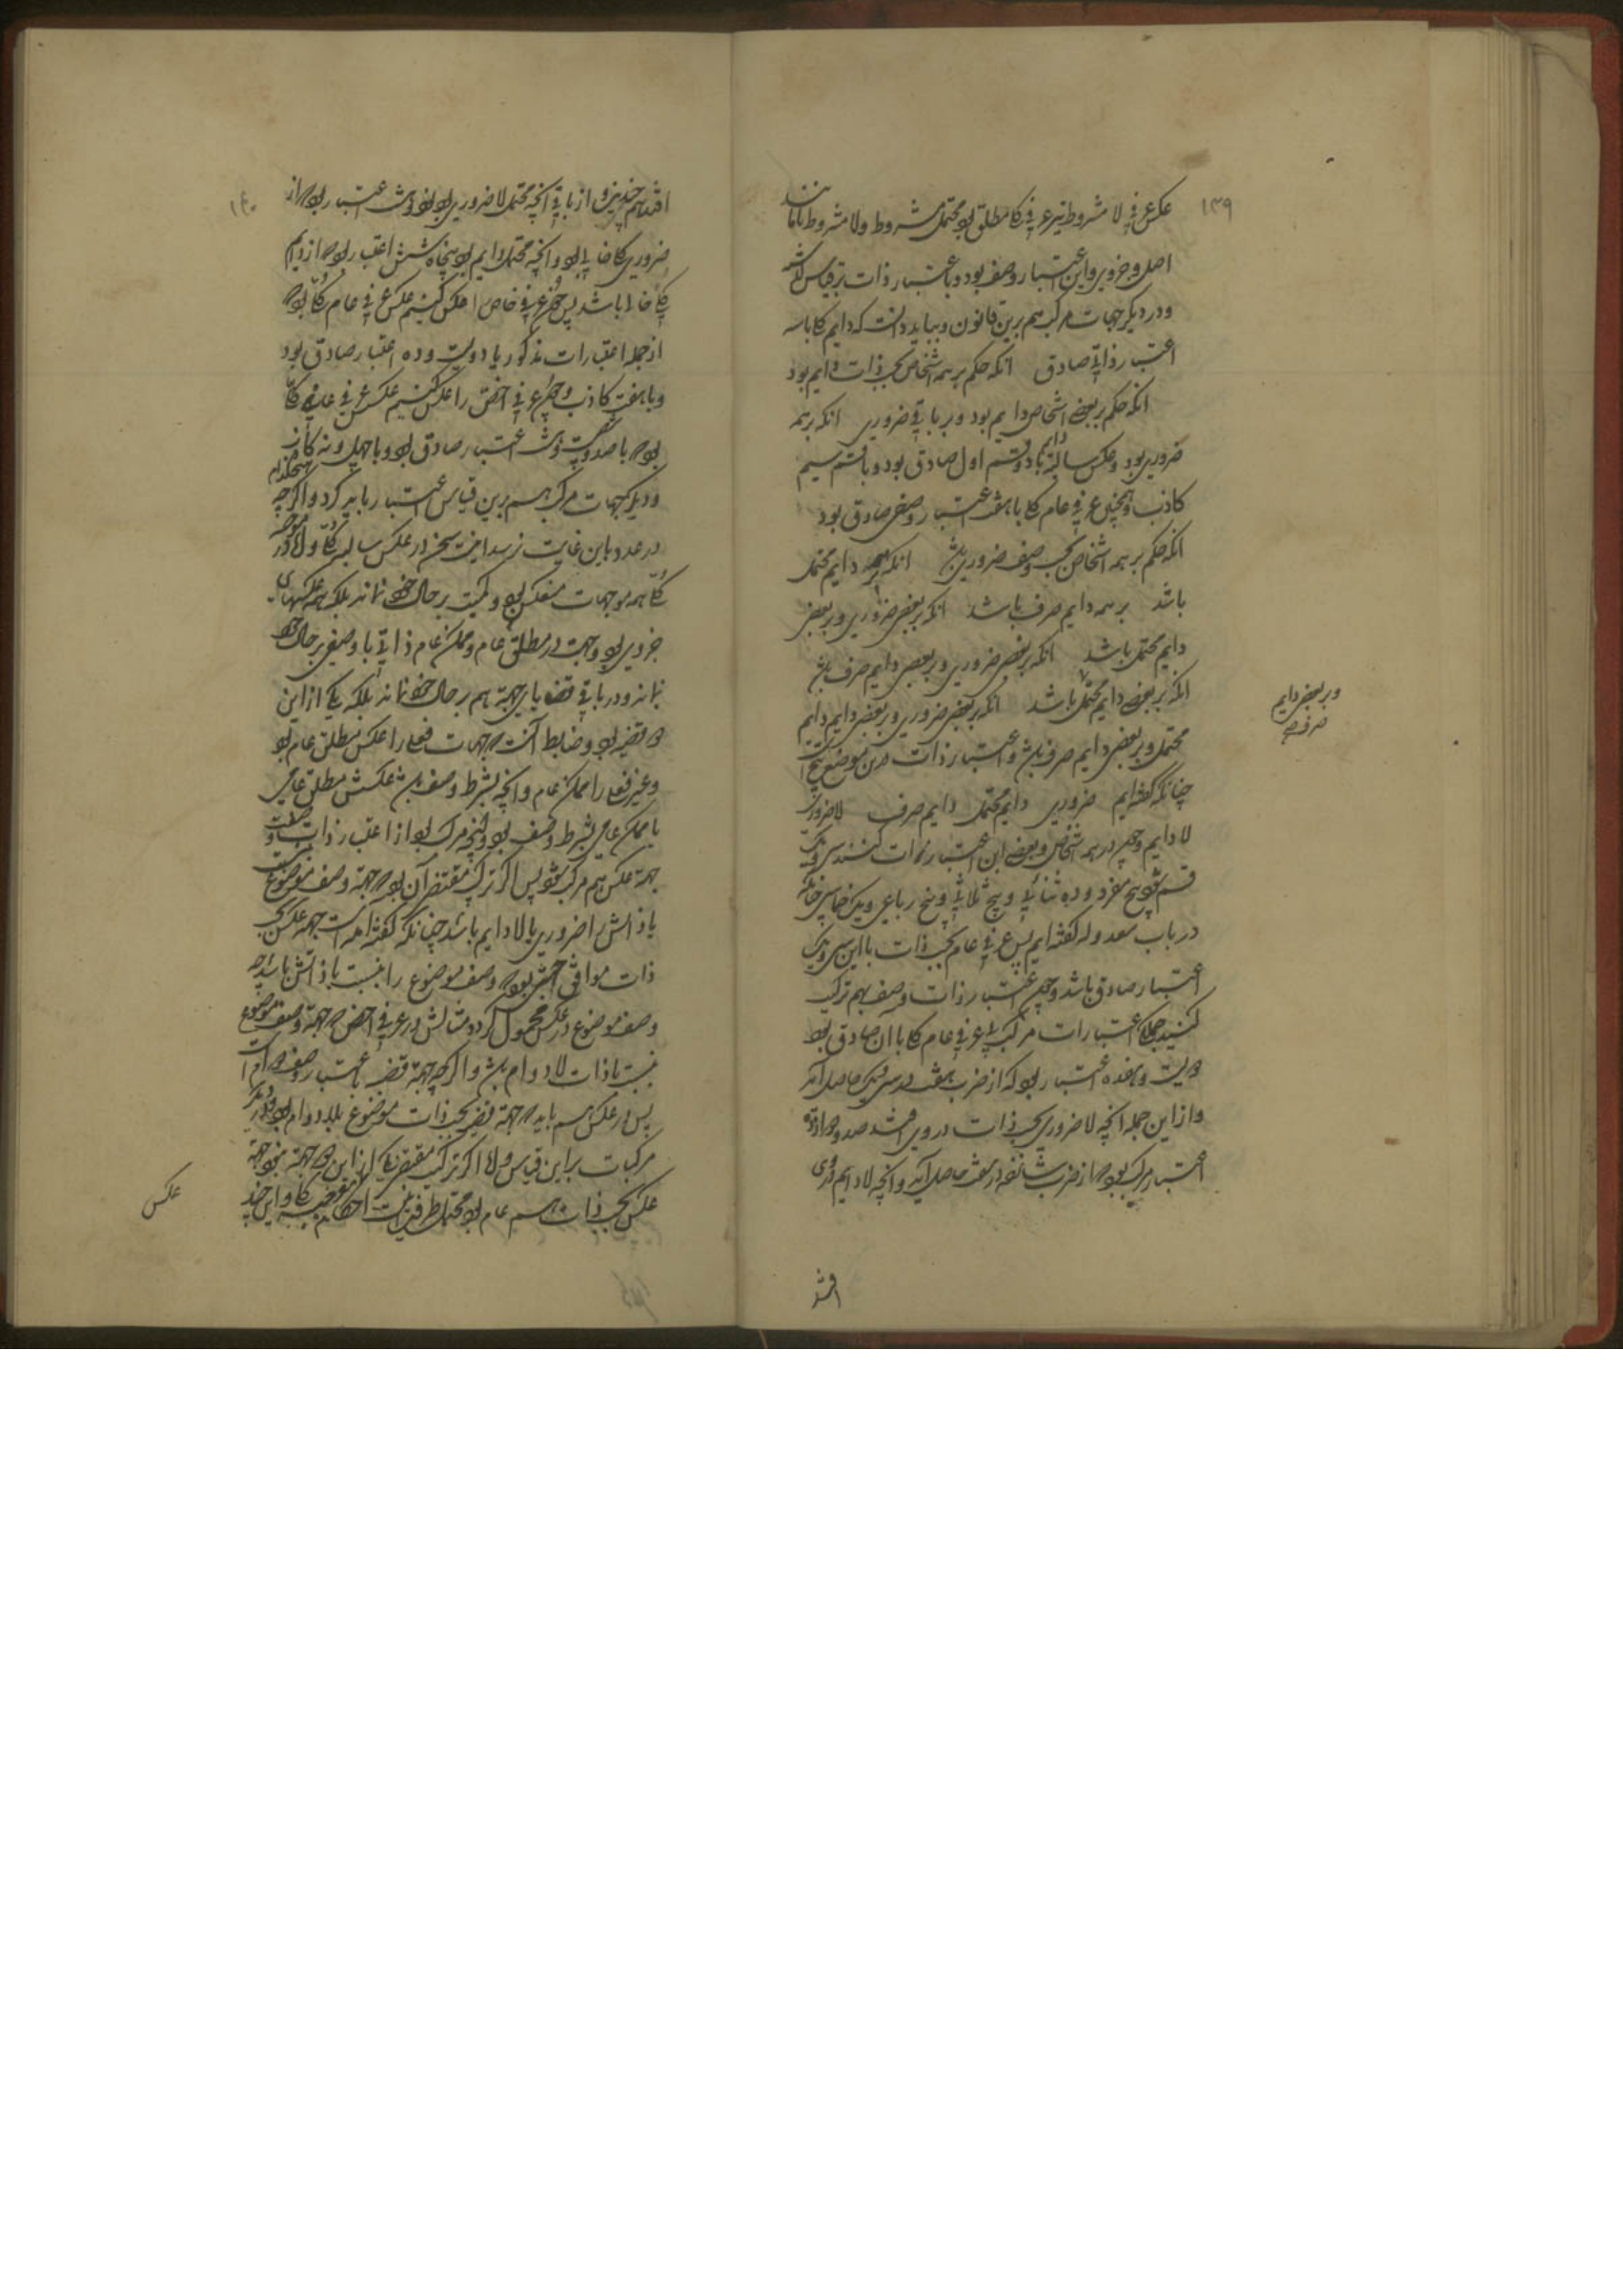 ۱۳۹
عکس عرفی لا مشروط نیز عرفی کلی مطلق بود محتمل مشروط و لا مشروط تا مانند
اصل و جزوی و این اعتبار وصف بود و باعتبار ذات برقیاس گذشته
و در دیگر جهات مرکب هم برین قانون و بباید دانست که دایم کلی با سه
اعتبار ذاتی صادق انکه حکم بر همه اشخاص بحسب ذات دایم بود
انکه حکم بر بعضی اشخاص دایم بود و بر باقی ضروری انکه بر همه
ضروری بود و عکس سالبه دایم با دو قسم اول صادق بود و با قسم سیم
کاذب و همچنین عرفی عام کلی با هفت اعتبار وصفی صادق بود
انکه حکم بر همه اشخاص بحسب وصف ضروری باشد انکه بر همه دایم محتمل
باشد بر همه دایم صرف باشد انکه بر بعضی ضروری و بر بعضی
دایم محتمل باشد انکه بر بعضی ضروری و بر بعضی دایم صرف باشد
انکه بر بعضی دایم محتمل باشد انکه بر بعضی ضروری و بر بعضی دایم دایم
و بر بعضی دایم
صرف
محتمل و بر بعضی دایم صرف باشد و اعتبار ذات درین موضع پنج است
چنانکه گفته‌ایم ضروری دایم محتمل دایم صرف لا ضروری
لا دایم و چون در همه اشخاص و بعضی این اعتبارات کنند سی و یک
قسم شود پنج مفرد و ده ثنائی و ده ثلاثی و پنج رباعی و یک خماسی چنانکه
در باب معدوله گفته‌ایم پس عرفی عام بحسب ذات با این سی و یک
اعتبار صادق باشد و چون اعتبار ذات و وصف بهم ترکیب
کنیم جمله اعتبارات مرکب که عرفی عام کلی با آن صادق بود
دویست و هفده اعتبار بود که از ضرب هفت در سی و یک حاصل آید
و از این جمله انچه لا ضروری بحسب ذات در وی افتد صد و دوازده
اعتبار مرکب بود که از ضرب شانزده در هفت حاصل آید و انچه لا دایم در وی
افتد
۱۴۰
افتد هم چندین و از باقی انچه محتمل لا ضروری بود نود و شش اعتبار بود که از
ضروری کلی خالی بود و انچه محتمل دایم بود پنجاه و شش اعتبار بود که از دایم
کلی خالی باشد پس چون عرفی خاص را عکس کنیم عکس عرفی عام کلی بود که
از جمله اعتبارات مذکور با دویست و ده اعتبار صادق بود
و با هفت کاذب و چون عرفی اخص را عکس کنیم عکس عرفی عام کلی
بود که با صد و شصت و شش اعتبار صادق بود و با چهل و نه کاذب
و دیگر جهات مرکب هم برین قیاس اعتبار باید کرد و اگر چه
در عدد باین غایت نرسد اینست سخن در عکس سالبه کلی و اما موجبه
کلی همه موجهات منعکس بود و کمیت بر حال خود نماند بلکه همه عکسهای
جزوی بود و جهت در مطلق عام و ممکن عام ذاتی یا وصفی بر حال خود
بماند و در باقی قضایا جهت هم بر حال خود نماند بلکه یکی از این
دو قضیه بود و ضابط آنست که جهات فعلی را عکس مطلق عام بود
و غیر فعلی را ممکن عام و انچه بشرط وصف باشد عکسش مطلق عامی
یا ممکن عامی بشرط وصف بود و انچه مرکب بود از اعتبار ذات و صفت
جهت عکس هم مرکب شود پس اگر ترکیب مقتضی آن بود که جهت وصف موضوع
با ذاتش لا ضروری یا لا دایم باشد چنانکه گفته آمده است جهت عکس بحسب
ذات موافق جهتش بود که وصف موضوع را نسبت با ذاتش باشد چه
وصف موضوع در عکس محمول گردد مثالش در عرفی اخص که جهت وصف موضوع
نسبت با ذات لا دوام باشد و اگر چه جهت قضیه باعتبار وصف دوام است
پس در عکس هم باید که جهت قضیه بحسب ذات موضوع بلا دوام بود و دیگر
مرکبات بر این قیاس و الا اگر ترکیب مقتضی یکی از این دو جهت نبود جهت
عکس بحسب ذات هم عام بود محتمل طرفین اینست احکام عکس موجبه کلی و این چند
عکس